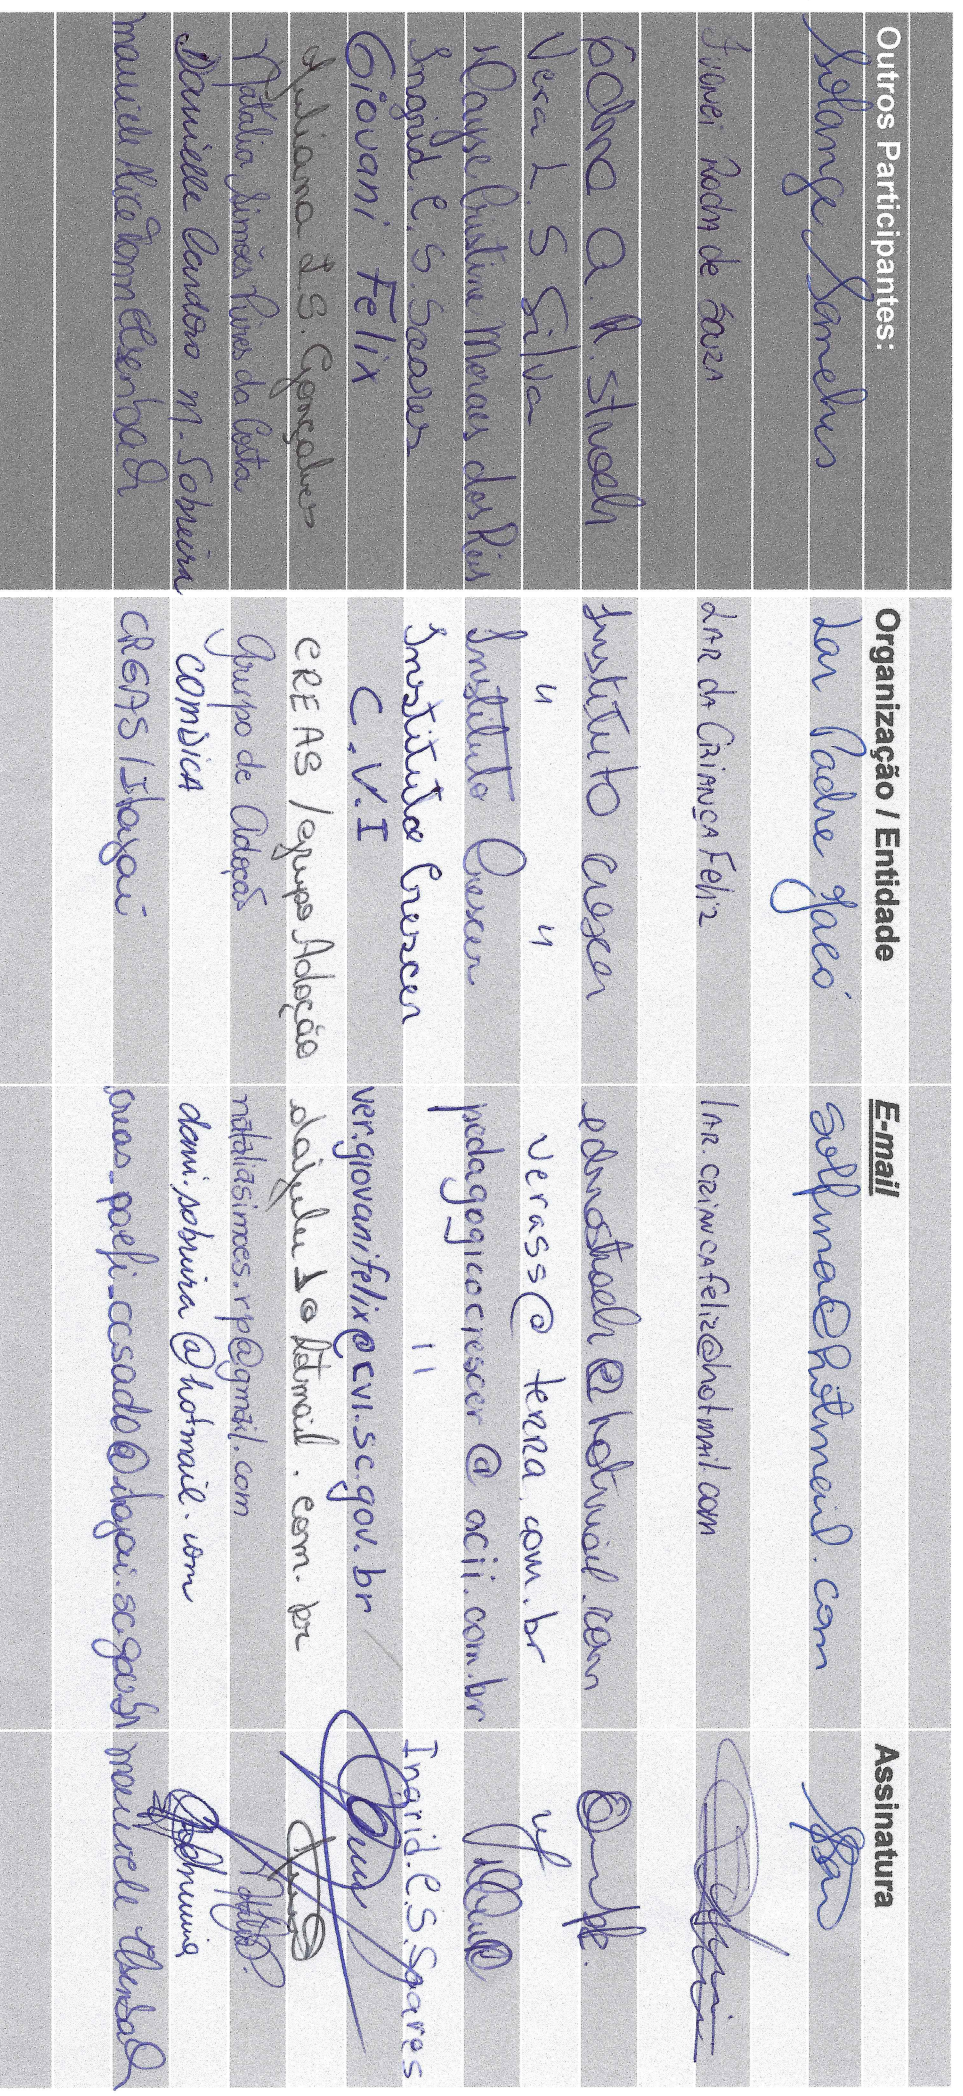 Outros Participantes: Organização / Entidade E-mail Assinatura
Solange Sanches Lar Padre Jacó solfmae@hotmail.com
Ivonei Rocha de Souza LAR da CRIANÇA Feliz lar.criancafeliz@hotmail.com
Edna A. R. Stroeh Instituto Crescer ednastroeh@hotmail.com
Vera L. S Silva " " verass@terra.com.br
Dayse Cristine Moraes dos Reis Instituto Crescer pedagogicocrescer@acii.com.br
Ingrid. C. S. Soares Instituto Crescer " Ingrid. C. S. Soares
Giovani Felix C.V.I ver.giovanifelix@cvi.sc.gov.br
Juliana I. S. Gonçalves CREAS / grupo Adoção
Natália Simões Pires da Costa Grupo de Adoção nataliasimoes.rp@gmail.com
Danielle Cardoso M. Sobreira COMDICA dani.sobreira@hotmail.com
CREAS / Itajaí